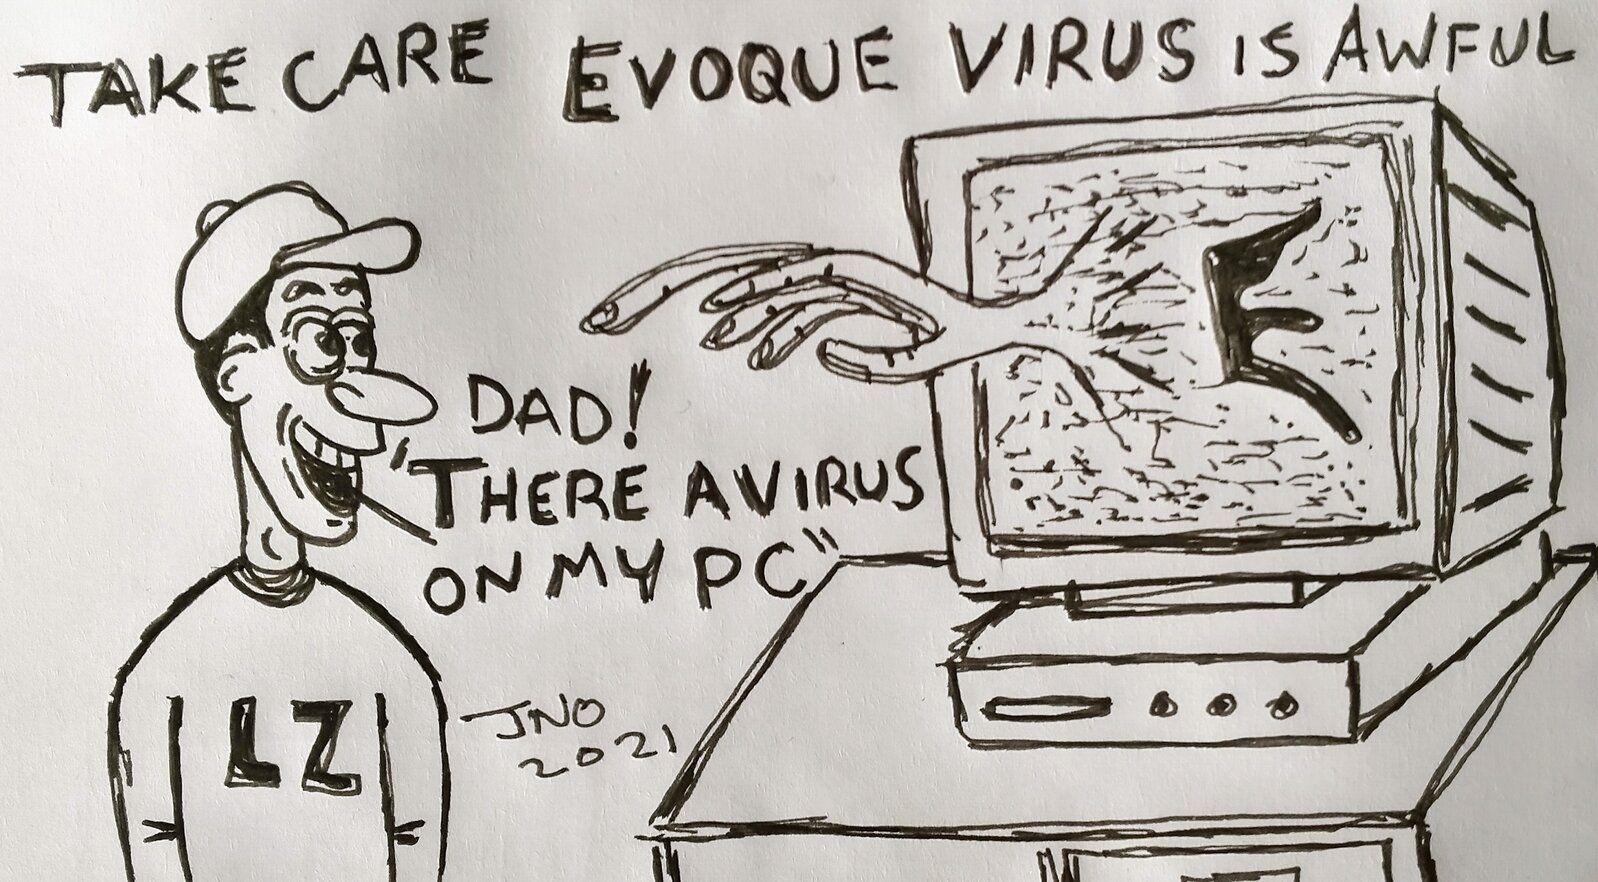 TAKE CARE EVOQUE VIRUS IS AWFUL
E
DAD!
"THERE A VIRUS
ON MY PC"
LZ
JNO
2021